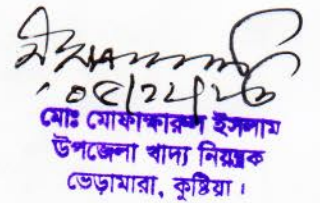 মোঃ মোফাক্ষারুল ইসলাম
উপজেলা খাদ্য নিয়ন্ত্রক
ভেড়ামারা, কুষ্টিয়া।